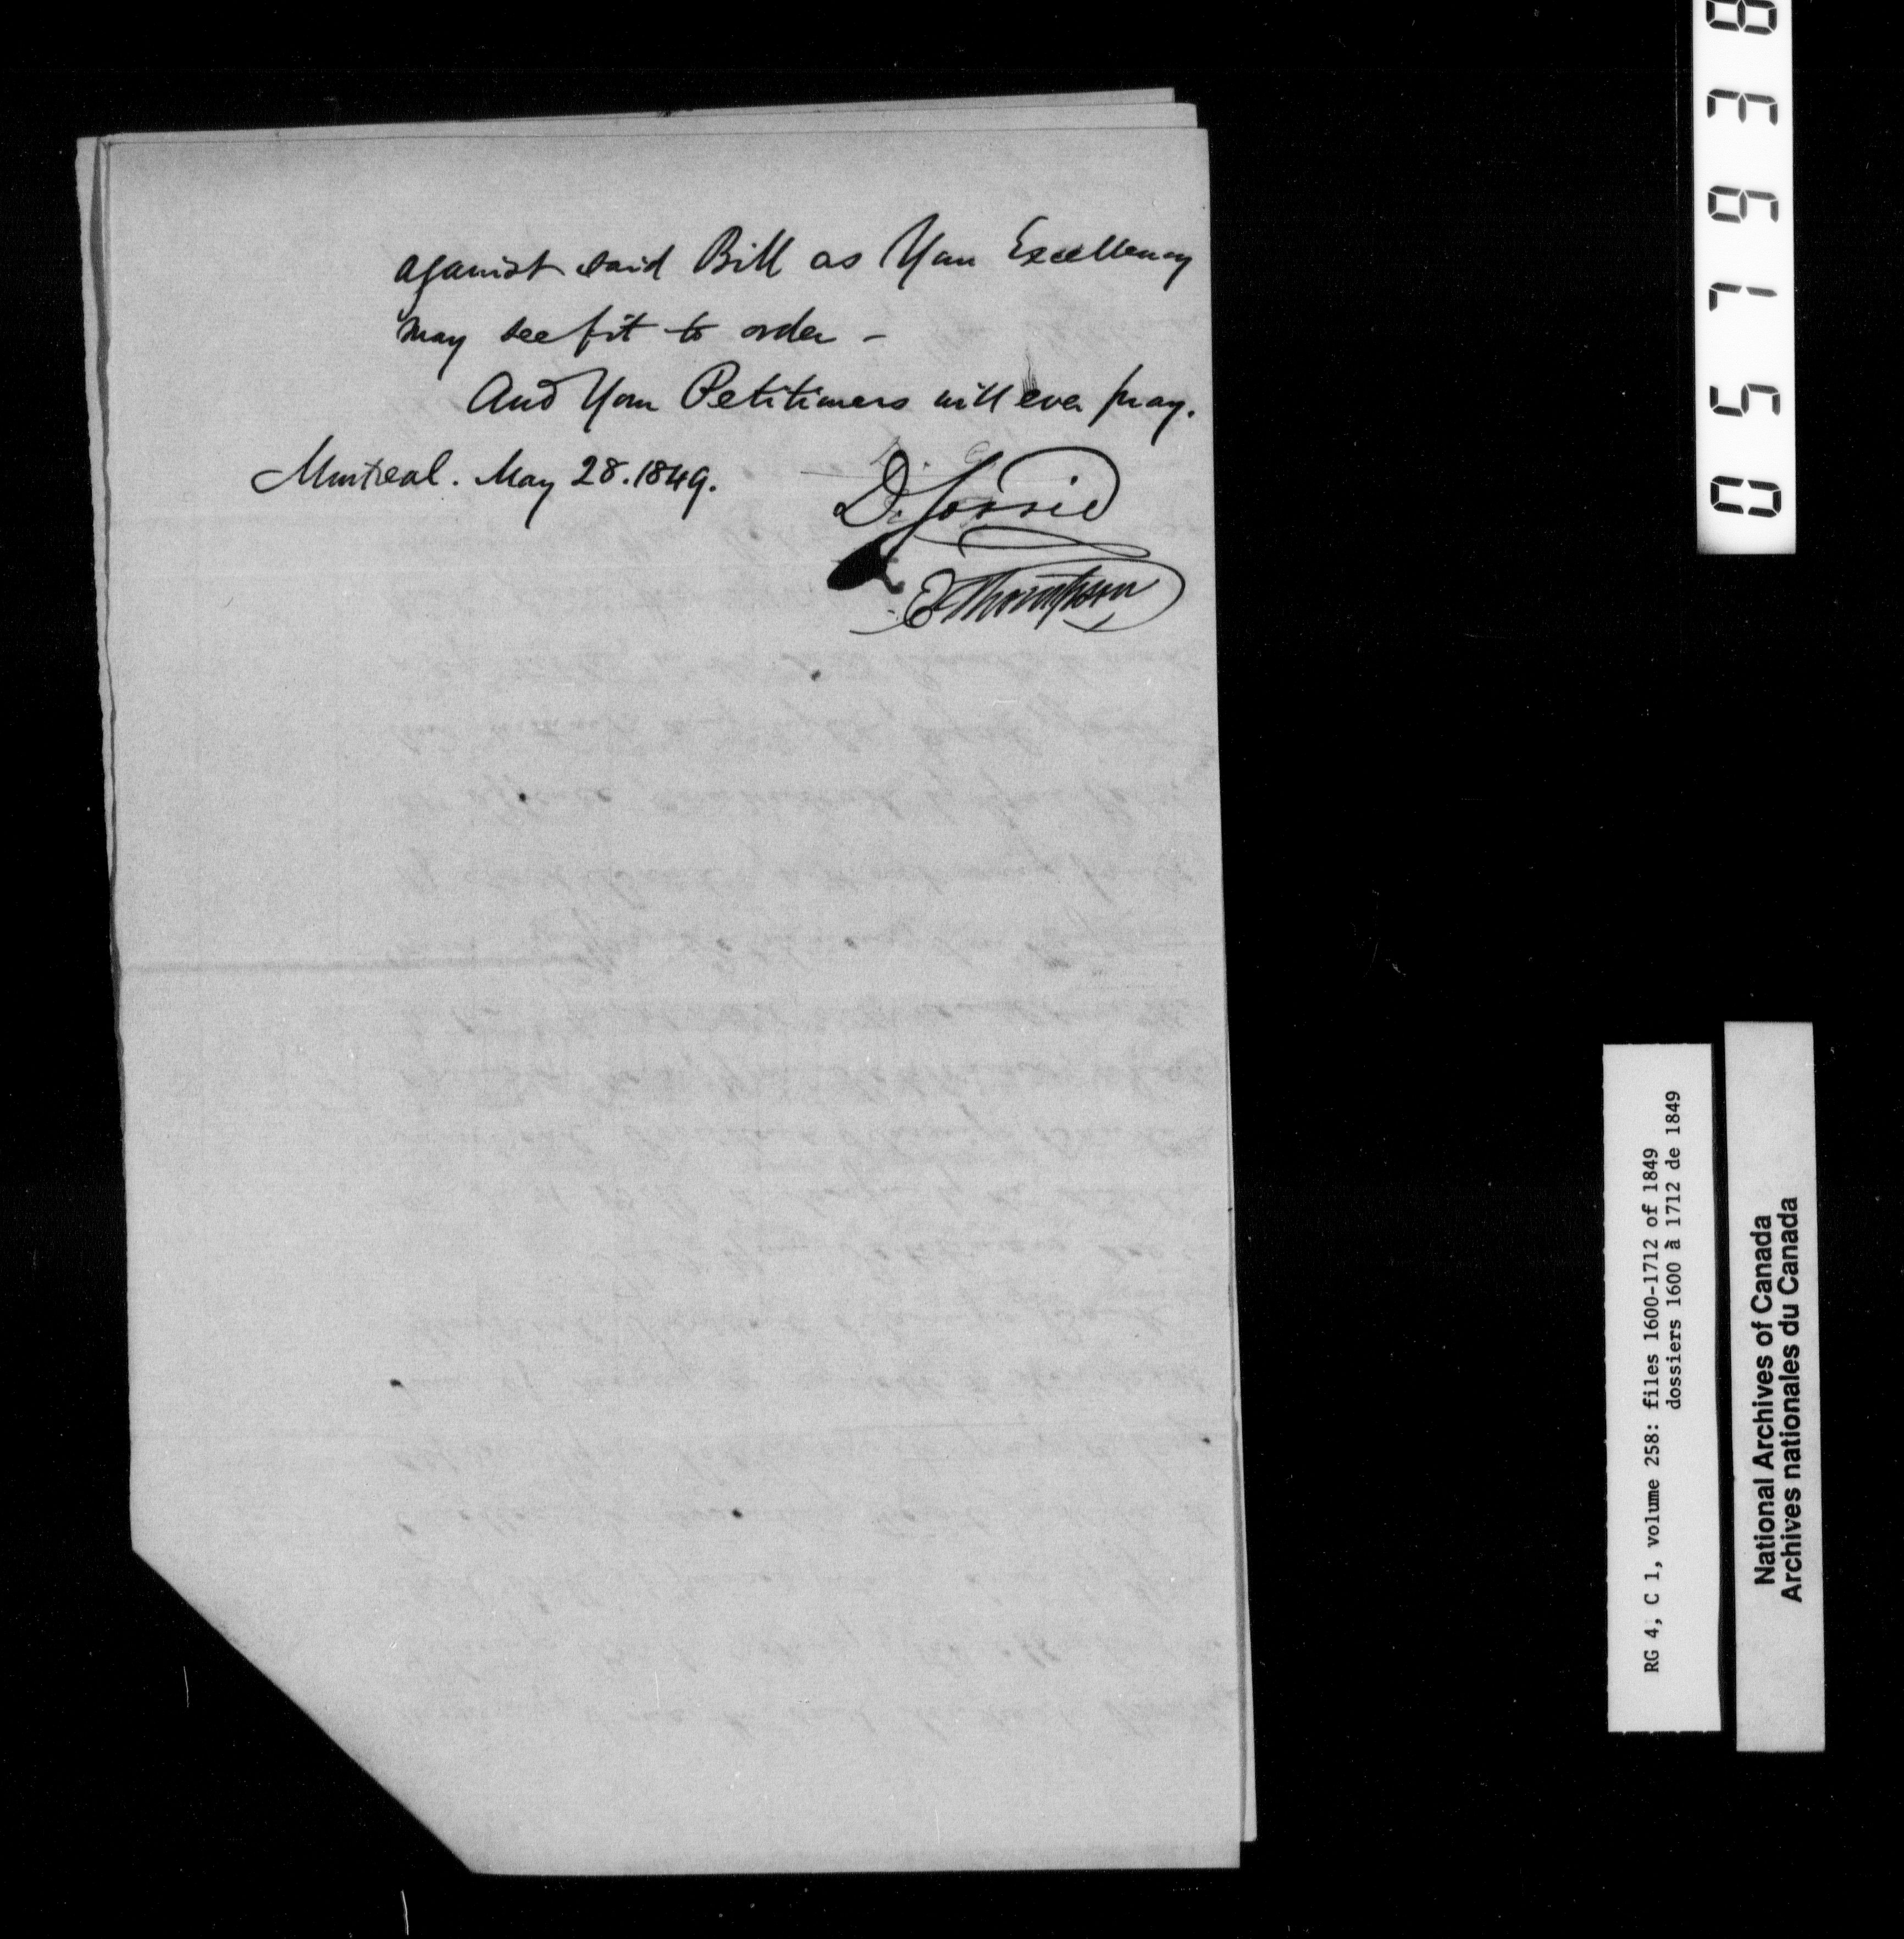 against said Bill as Your Excellency
may see fit to order –
And Your Petitioners will ever pray.
Montreal. May 28. 1849.
D.
E Thompson
057938
RG 4, C 1, volume 258: files 1600-1712 of 1849
dossiers 1600 à 1712 de 1849
National Archives of Canada
Archives nationales du Canada